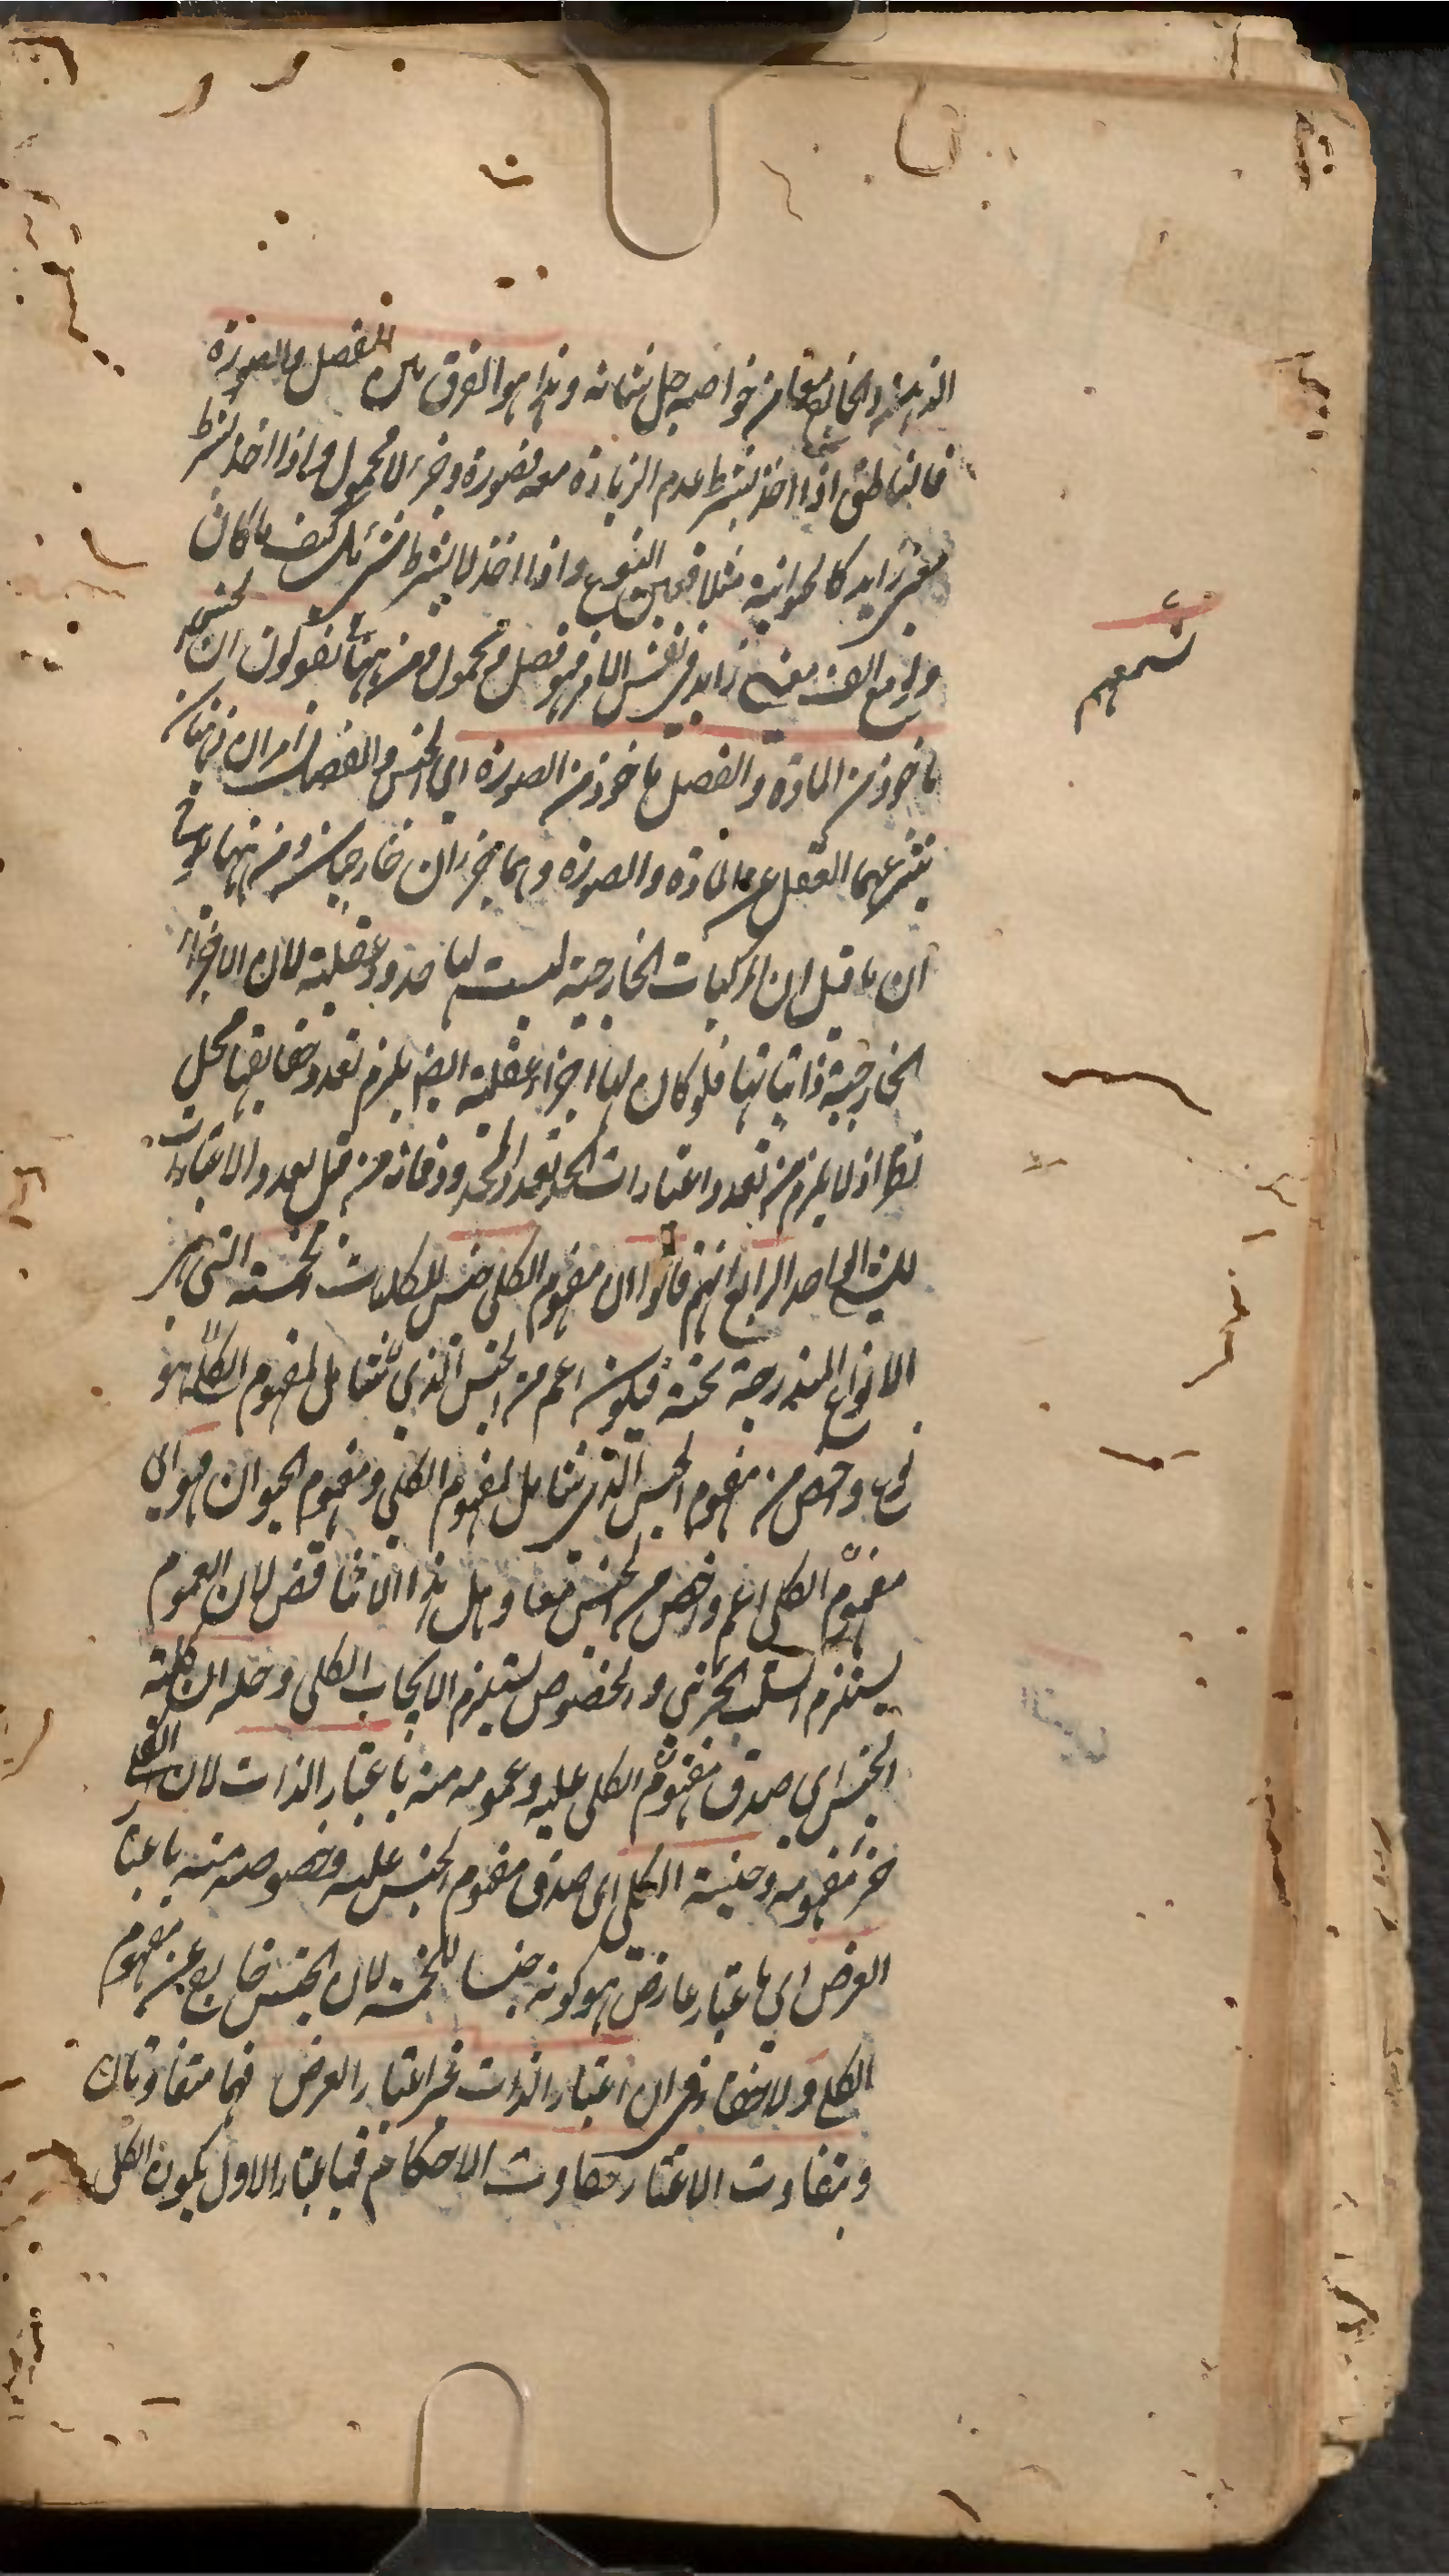 الذهنية والخارجية معا من خواصه جل شانه وهذا هو الفرق بين الفصل والصورة
فالناطق اذا اخذ بشرط عدم الزيادة معه فصورة وجزء لا محمول واذا اخذ بشرط
معنى زايد كالحيوانية مثلا فعين النوع واذا اخذ لا بشرط شئ بل كيف ما كان
ولو مع الف معنى زايد فى نفس الامر فهو فصل ومحمول ومن ههنا تسمعهم يقولون ان الجنس
ماخوذ من المادة والفصل ماخوذ من الصورة اى الجنس والفصل امران ذهنيان
ينتزعهما العقل عن المادة والصورة وهما جزءان خارجيان ومن ههنا
ان ما قيل ان المركبات الخارجية ليست لها حدود عقلية لان الاجزاء
الخارجية ذاتياتها فلو كان لها اجزاء عقلية ايضا يلزم تعدد حقايقها محل
نظر اذ لا يلزم من تعدد اعتبارات الحد تعدد المحدود فانه من قبل تعدد الاعتبارات
للشئ الواحد الرابع انهم قالوا ان مفهوم الكلى جنس للكليات الخمسة التى هى
الانواع المندرجة تحته فيكون اعم من الجنس الذى شامل لمفهوم الكلى هو
نوع واخص من مفهوم الجنس الذى شامل لمفهوم الكلى ومفهوم الحيوان فهو اى
مفهوم الكلى اعم واخص من الجنس معا وهل هذا الا تناقض لان العموم
يستلزم السلب الجزئى والخصوص يستلزم الايجاب الكلى وحله ان كلية
الجنس اى صدق مفهوم الكلى عليه وعمومه منه باعتبار الذات لان الكلى
جزء مفهومه وجنسية الكلى اى صدق مفهوم الجنس عليه وخصوصه منه باعتبار
العرض اى باعتبار عارض هو كونه جنسا للخمسة لان الجنس خارج عن مفهوم
الكلى ولا خفاء فى ان اعتبار الذات غير اعتبار العرض فهما متفاوتان
وبتفاوت الاعتبار تتفاوت الاحكام فباعتبار الاول يكون الكلى
تسمعهم